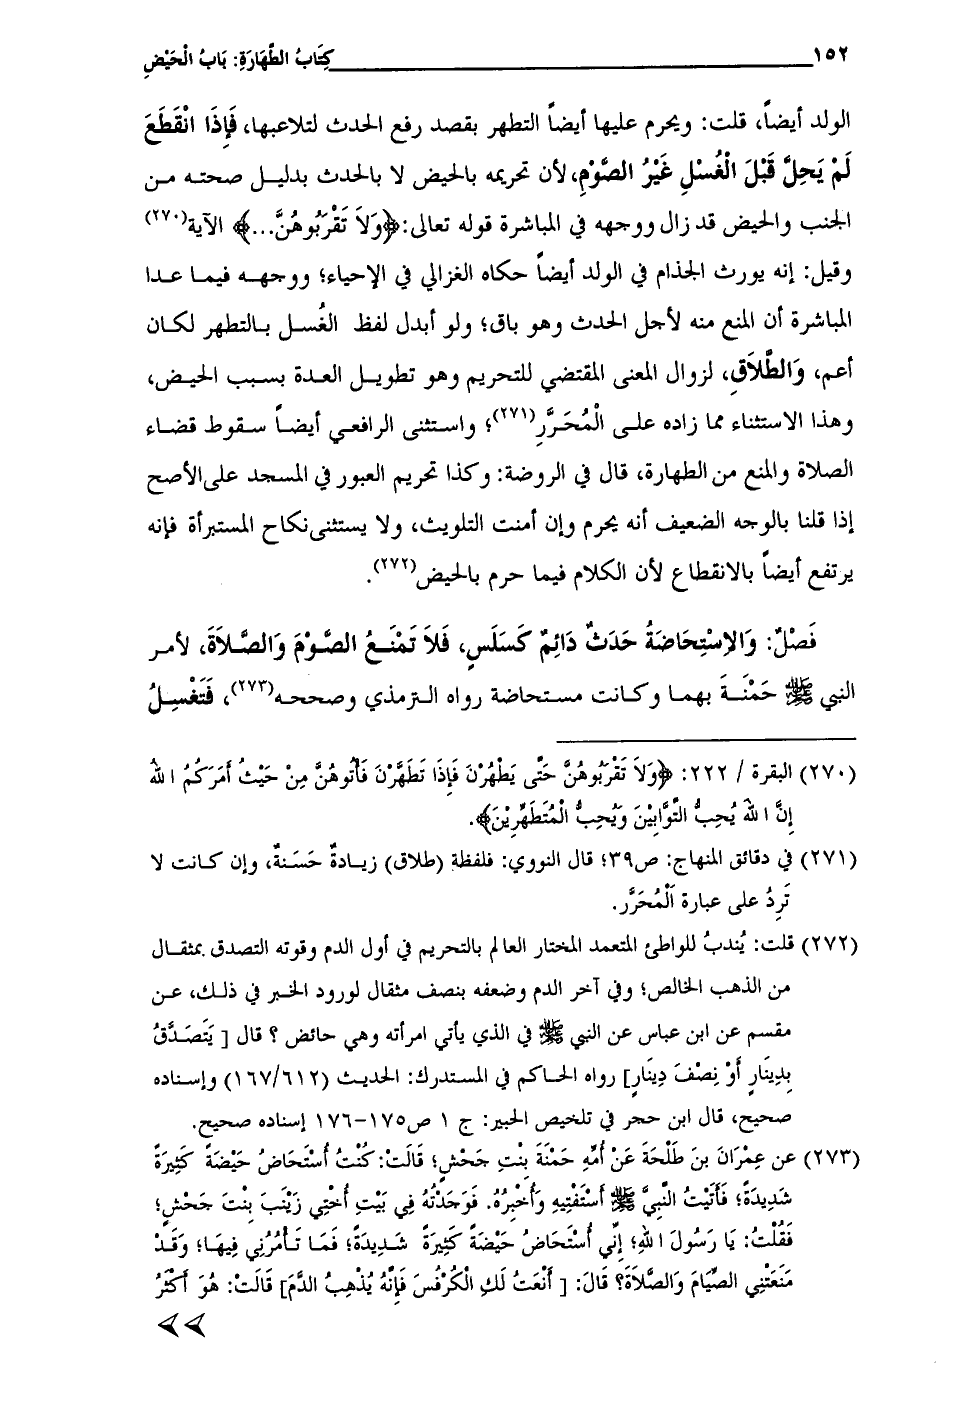 ١٥٢ كِتَابُ الطَّهَارَةِ: بَابُ الْحَيْضِ
الولد أيضاً، قلت: ويحرم عليها أيضاً التطهر بقصد رفع الحدث لتلاعبها، فَإِذَا انْقَطَعَ
لَمْ يَحِلَّ قَبْلَ الْغُسْلِ غَيْرُ الصَّوْمِ، لأن تحريمه بالحيض لا بالحدث بدليل صحته من
الجنب والحيض قد زال ووجهه في المباشرة قوله تعالى: ﴿وَلاَ تَقْرَبُوهُنَّ...﴾ الآية(٢٧٠)
وقيل: إنه يورث الجذام في الولد أيضاً حكاه الغزالي في الإحياء؛ ووجهه فيما عدا
المباشرة أن المنع منه لأجل الحدث وهو باق؛ ولو أبدل لفظ الغُسل بالتطهر لكان
أعم، وَالطَّلاَقِ، لزوال المعنى المقتضي للتحريم وهو تطويل العدة بسبب الحيض،
وهذا الاستثناء مما زاده على الْمُحَرَّرِ(٢٧١)؛ واستثنى الرافعي أيضاً سقوط قضاء
الصلاة والمنع من الطهارة، قال في الروضة: وكذا تحريم العبور في المسجد على الأصح
إذا قلنا بالوجه الضعيف أنه يحرم وإن أمنت التلويث، ولا يستثنى نكاح المستبرأة فإنه
يرتفع أيضاً بالانقطاع لأن الكلام فيما حرم بالحيض(٢٧٢).
فَصْلٌ: وَالاِسْتِحَاضَةُ حَدَثٌ دَائِمٌ كَسَلَسٍ، فَلاَ تَمْنَعُ الصَّوْمَ وَالصَّلاَةَ، لأمر
النبي ﷺ حَمْنَةَ بهما وكانت مستحاضة رواه الترمذي وصححه(٢٧٣)، فَتَغْسِلُ
(٢٧٠) البقرة / ٢٢٢: ﴿وَلاَ تَقْرَبُوهُنَّ حَتَّى يَطْهُرْنَ فَإِذَا تَطَهَّرْنَ فَأْتُوهُنَّ مِنْ حَيْثُ أَمَرَكُمُ اللهُ
إِنَّ اللهَ يُحِبُّ التَّوَّابِيْنَ وَيُحِبُّ الْمُتَطَهِّرِيْنَ﴾.
(٢٧١) في دقائق المنهاج: ص٣٩؛ قال النووي: فلفظة (طلاق) زيادةٌ حَسَنةٌ، وإن كانت لا
تَرِدُ على عبارة اَلْمُحَرَّر.
(٢٧٢) قلت: يُندبُ للواطئ المتعمد المختار العالم بالتحريم في أول الدم وقوته التصدق بمثقال
من الذهب الخالص؛ وفي آخر الدم وضعفه بنصف مثقال لورود الخبر في ذلك، عن
مقسم عن ابن عباس عن النبي ﷺ في الذي يأتي امرأته وهي حائض ؟ قال [ يَتَصَدَّقُ
بِدِينَارٍ أَوْ نِصْفَ دِينَارٍ] رواه الحاكم في المستدرك: الحديث (١٦٧/٦١٢) وإسناده
صحيح، قال ابن حجر في تلخيص الحبير: ج ١ ص١٧٥-١٧٦ إسناده صحيح.
(٢٧٣) عن عِمْرَانَ بنَ طَلْحَةَ عَنْ أُمِّهِ حَمْنَةَ بِنْتِ جَحْشٍ؛ قَالَتْ: كُنْتُ أُسْتَحَاضُ حَيْضَةً كَثِيرَةً
شَدِيدَةً؛ فَأَتَيْتُ النَّبِيَّ ﷺ أَسْتَفْتِيهِ وَأُخْبِرُهُ. فَوَجَدْتُهُ فِي بَيْتِ أُخْتِي زَيْنَبَ بِنْتَ جَحْشٍ؛
فَقُلْتُ: يَا رَسُولَ اللهِ؛ إِنِّي أُسْتَحَاضُ حَيْضَةً كَثِيرَةً شَدِيدَةً؛ فَمَا تَأْمُرُنِي فِيهَا؛ وَقَدْ
مَنَعَتْنِي الصِّيَامَ وَالصَّلاَةَ؟ قَالَ: [ أَنْعَتُ لَكِ الْكُرْفُسَ فَإِنَّهُ يُذْهِبُ الدَّمَ] قَالَتْ: هُوَ أَكْثَرُ